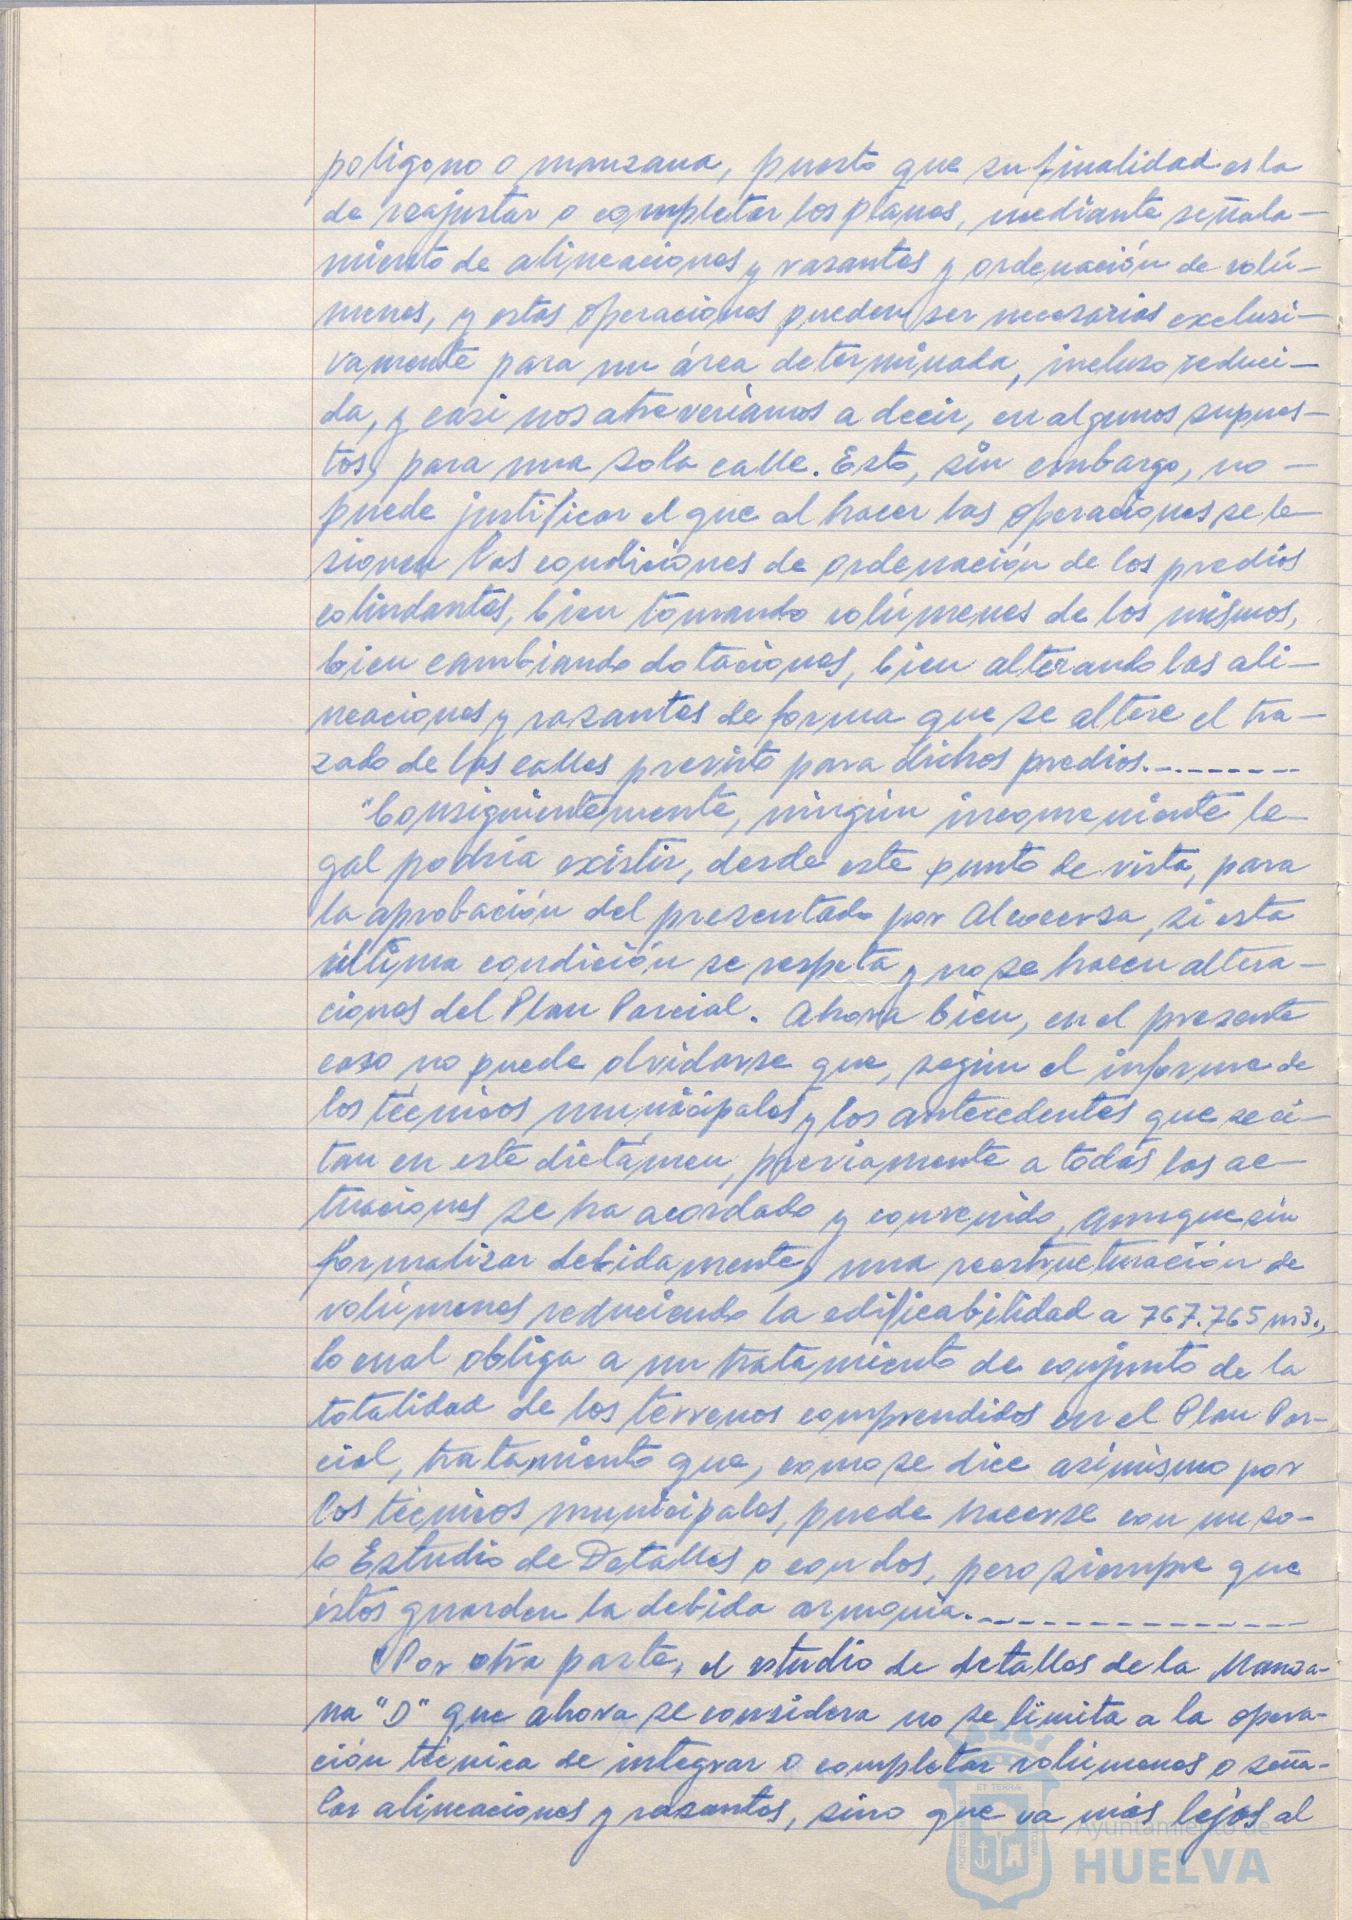 polígono o manzana, puesto que su finalidad es la
de reajustar o completar los planes, mediante señala-
miento de alineaciones y rasantes y ordenación de volú-
menes, y estas operaciones pueden ser necesarias exclusi-
vamente para un área determinada, incluso reduci-
da, y casi nos atreveríamos a decir, en algunos supues-
tos, para una sola calle. Esto, sin embargo, no -
puede justificar el que al hacer las operaciones se le-
sionen las condiciones de ordenación de los predios
colindantes, bien tomando volúmenes de los mismos,
bien cambiando dotaciones, bien alterando las ali-
neaciones y rasantes de forma que se altere el tra-
zado de las calles previsto para dichos predios.---------
"Consiguientemente, ningún inconveniente le-
gal podría existir, desde este punto de vista, para
la aprobación del presentado por Alcocersa, si esta
última condición se respeta y no se hacen altera-
ciones del Plan Parcial. Ahora bien, en el presente
caso no puede olvidarse que, según el informe de
los técnicos municipales y los antecedentes que se ci-
tan en este dictámen, previamente a todas las ac-
tuaciones se ha acordado y convenido, aunque sin
formalizar debidamente, una reestructuración de
volúmenes reduciendo la edificabilidad a 767.765 m3.,
lo cual obliga a un tratamiento de conjunto de la
totalidad de los terrenos comprendidos en el Plan Par-
cial, tratamiento que, como se dice asimismo por
los técnicos municipales, puede hacerse con un so-
lo Estudio de Detalles o con dos, pero siempre que
éstos guarden la debida armonía.---------------
"Por otra parte, el estudio de detalles de la Manza-
na "D" que ahora se considera no se limita a la opera-
ción técnica de integrar o completar volúmenes o seña-
lar alineaciones y rasantes, sino que va más lejos al
ET TERRAE
PORTUS MARIS
CUSTODIA
Ayuntamiento de
HUELVA